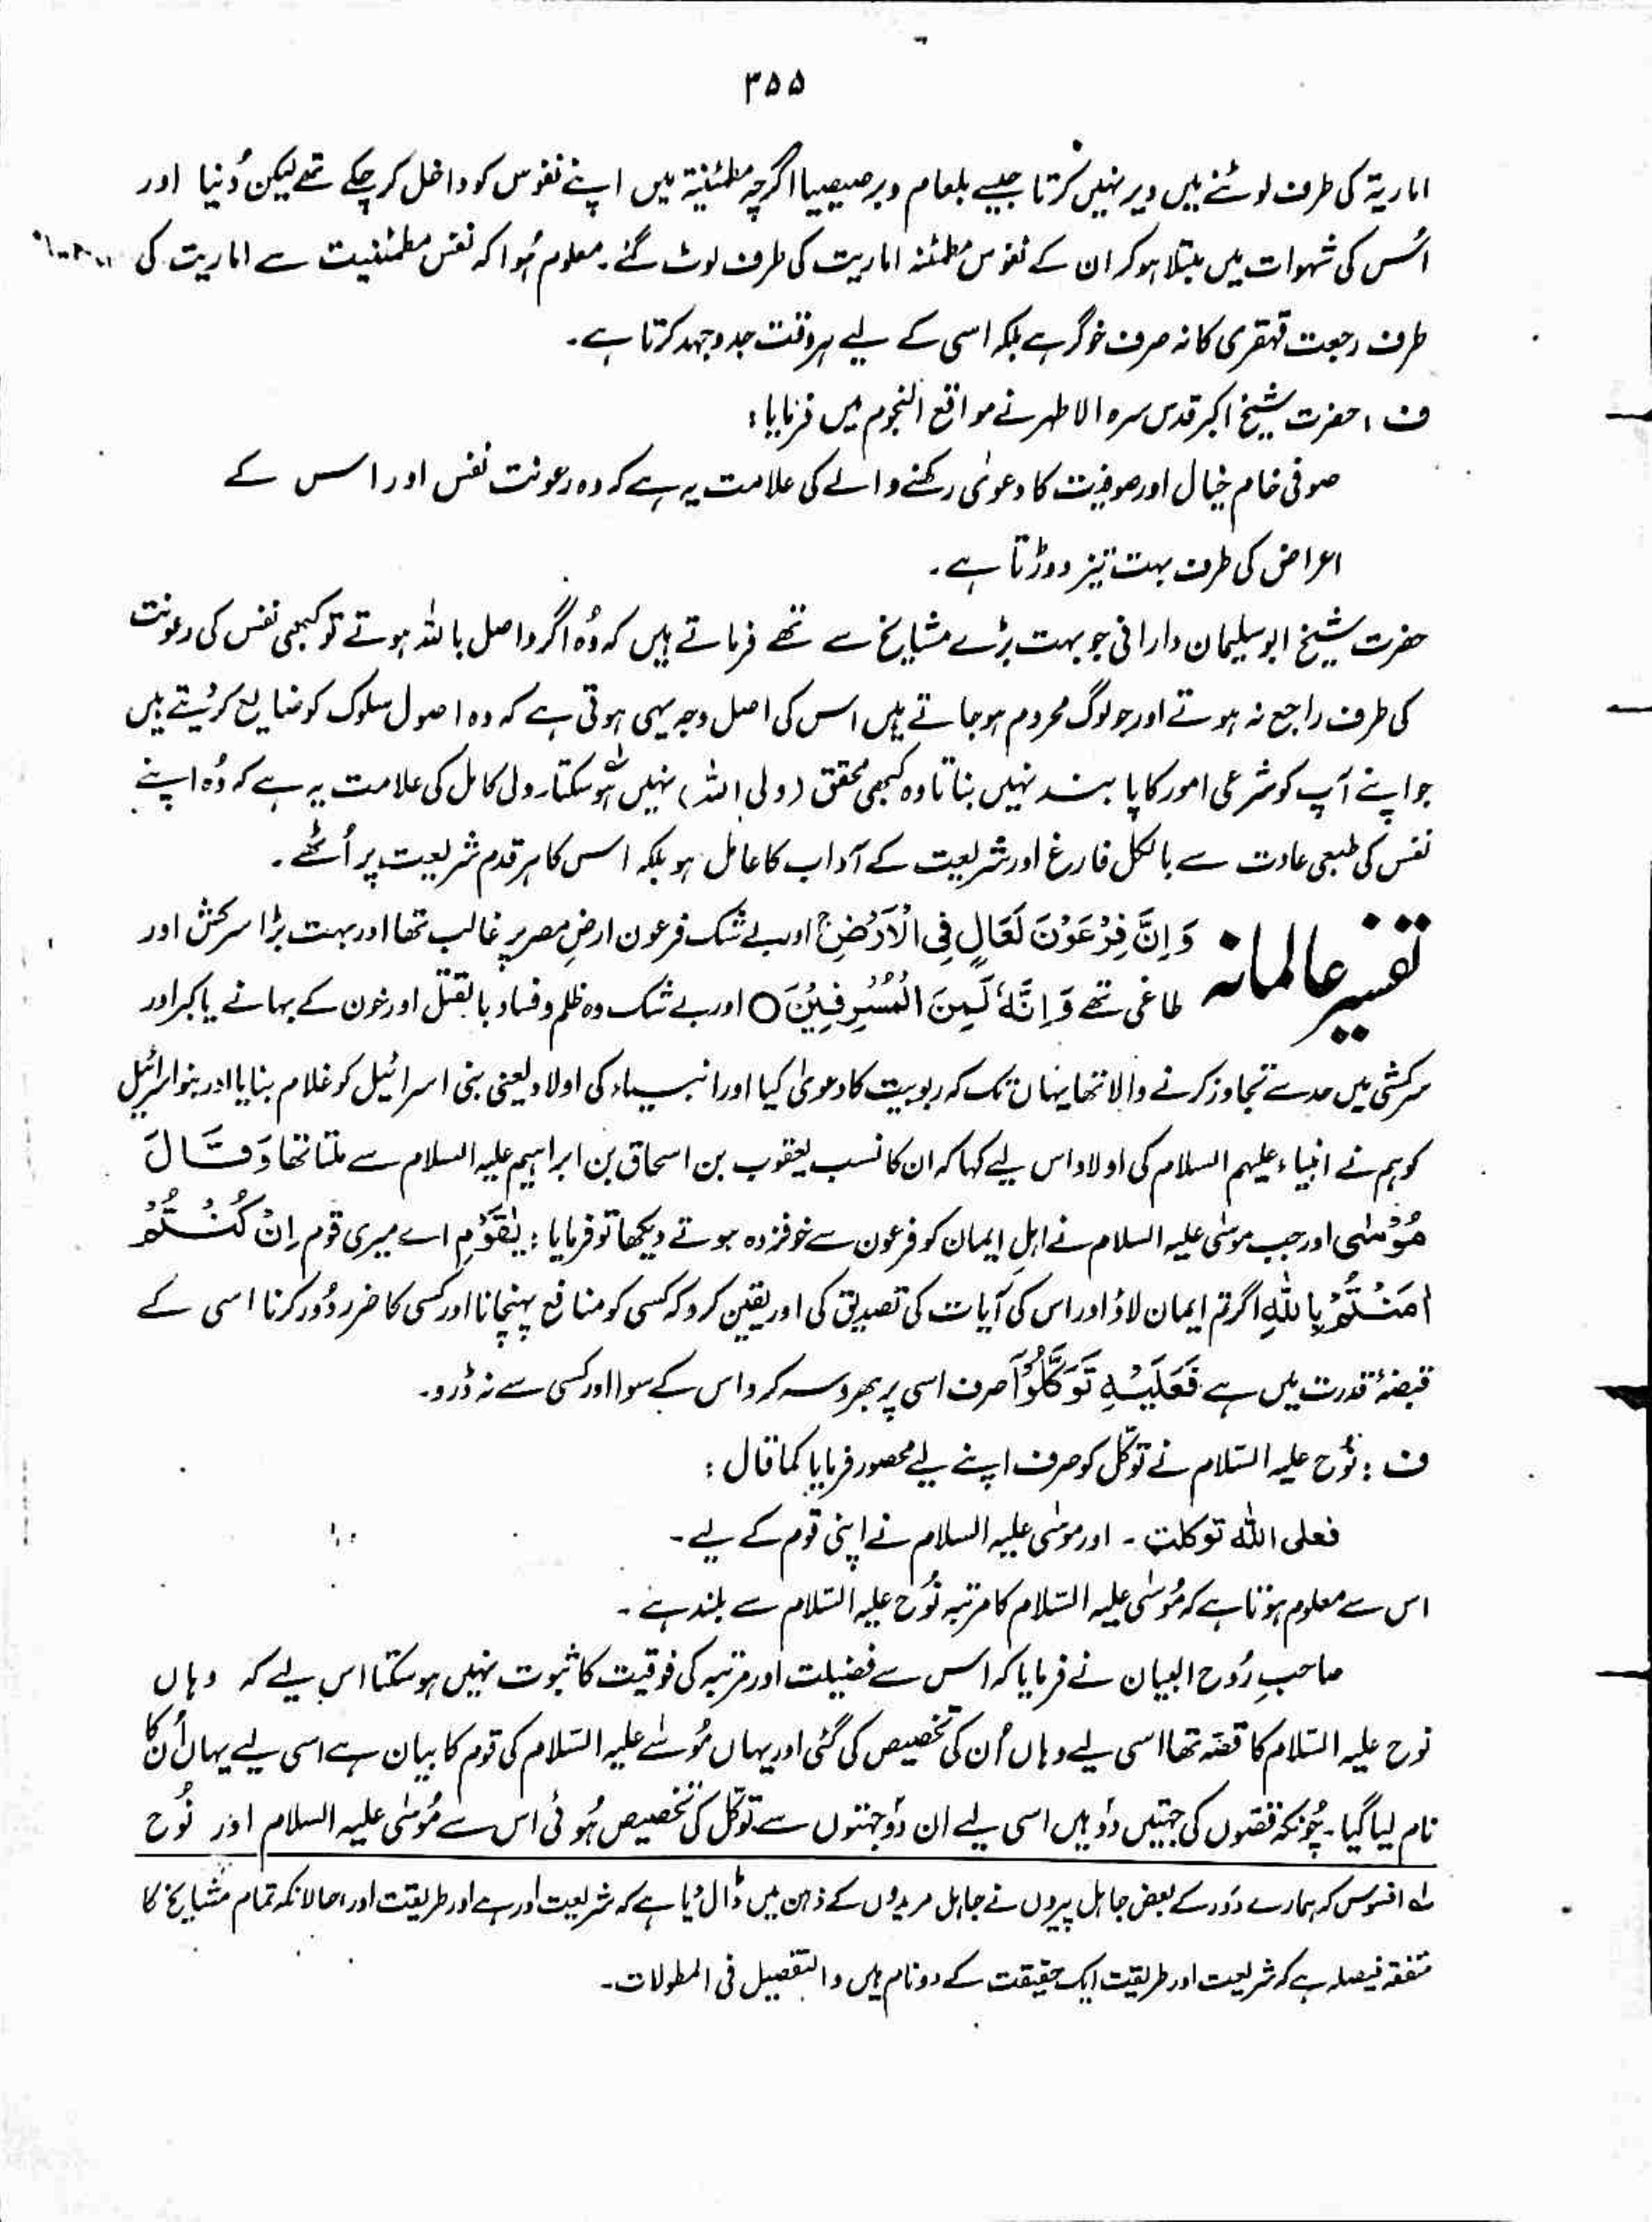 ۳۵۵
اماریۃ کی طرف لوٹنے میں دیر نہیں کرتا جیسے بلعام و برصیصیا اگرچہ مطمئنیۃ میں اپنے نفوس کو داخل کر چکے تھے لیکن دُنیا اور
اُس کی شہوات میں مبتلا ہو کر ان کے نفوس مطمئنہ اماریت کی طرف لوٹ گئے۔ معلوم ہُوا کہ نفس مطمئنیت سے اماریت کی
طرف رجعت قہقری کا نہ صرف خوگر ہے بلکہ اسی کے لیے ہر وقت جدوجہد کرتا ہے۔
ف : حضرت شیخ اکبر قدس سرہ الاطہر نے مواقع النجوم میں فرمایا :
صوفی خام خیال اور صوفیت کا دعوٰی رکھنے والے کی علامت یہ ہے کہ وہ رعونت نفس اور اس کے
اعراض کی طرف بہت تیز دوڑتا ہے۔
حضرت شیخ ابو سلیمان دارانی جو بہت بڑے مشایخ سے تھے فرماتے ہیں کہ وُہ اگر واصل باللہ ہوتے تو کبھی نفس کی رعونت
کی طرف راجع نہ ہوتے اور جو لوگ محروم ہو جاتے ہیں اس کی اصل وجہ یہی ہوتی ہے کہ وہ اصول سلوک کو ضایع کر دیتے ہیں
جو اپنے آپ کو شرعی امور کا پابند نہیں بناتا وہ کبھی محقق (ولی اللہ) نہیں ہو سکتا۔ ولی کامل کی علامت یہ ہے کہ وُہ اپنے
نفس کی طبعی عادت سے بالکل فارغ اور شریعت کے آداب کا عامل ہو بلکہ اس کا ہر قدم شریعت پر اُٹھے۔
تفسیر عالمانہ وَ اِنَّ فِرْعَوْنَ لَعَالٍ فِی الْاَرْضِ ۚ اور بے شک فرعون ارضِ مصر پر غالب تھا اور بہت بڑا سرکش اور
طاغی تھے وَ اِنَّهٗ لَمِنَ الْمُسْرِفِیْنَ ○ اور بے شک وہ ظلم و فساد بالقتل اور خون کے بہانے یا کبر اور
سرکشی میں حد سے تجاوز کرنے والا تھا یہاں تک کہ ربوبیت کا دعوٰی کیا اور انبیاء کی اولاد یعنی بنی اسرائیل کو غلام بنایا اور بنو اسرائیل
کو ہم نے انبیاء علیہم السلام کی اولاد اس لیے کہا کہ ان کا نسب یعقوب بن اسحاق بن ابراہیم علیہ السلام سے ملتا تھا وَ قَالَ
مُوْسٰی اور جب موسٰی علیہ السلام نے اہلِ ایمان کو فرعون سے خوفزدہ ہوتے دیکھا تو فرمایا : یٰقَوْمِ اے میری قوم اِنْ كُنْتُمْ
اٰمَنْتُمْ بِاللهِ اگر تم ایمان لاؤ اور اس کی آیات کی تصدیق کی اور یقین کرو کہ کسی کو منافع پہنچانا اور کسی کا ضرر دُور کرنا اسی کے
قبضۂ قدرت میں ہے فَعَلَیْهِ تَوَكَّلُوْۤا صرف اسی پر بھروسہ کرو اس کے سوا اور کسی سے نہ ڈرو۔
ف : نُوح علیہ السّلام نے توکّل کو صرف اپنے لیے محصور فرمایا کما قال :
فعلی اللہ توکلت ۔ اور موسٰی علیہ السلام نے اپنی قوم کے لیے۔
اس سے معلوم ہوتا ہے کہ مُوسٰی علیہ السّلام کا مرتبہ نُوح علیہ السّلام سے بلند ہے۔
صاحبِ رُوح البیان نے فرمایا کہ اس سے فضیلت اور مرتبہ کی فوقیت کا ثبوت نہیں ہو سکتا اس لیے کہ وہاں
نوح علیہ السّلام کا قصّہ تھا اسی لیے وہاں اُن کی تخصیص کی گئی اور یہاں مُوسٰی علیہ السّلام کی قوم کا بیان ہے اسی لیے یہاں اُن کا
نام لیا گیا۔ چُونکہ قصّوں کی جہتیں دو ہیں اسی لیے ان دو جہتوں سے توکّل کی تخصیص ہُوئی اس سے مُوسٰی علیہ السلام اور نُوح
لہ افسوس کہ ہمارے دَور کے بعض جاہل پیروں نے جاہل مریدوں کے ذہن میں ڈال دیا ہے کہ شریعت اور ہے اور طریقت اور، حالانکہ تمام مشایخ کا
متفقہ فیصلہ ہے کہ شریعت اور طریقت ایک حقیقت کے دو نام ہیں والتفصیل فی المطولات۔